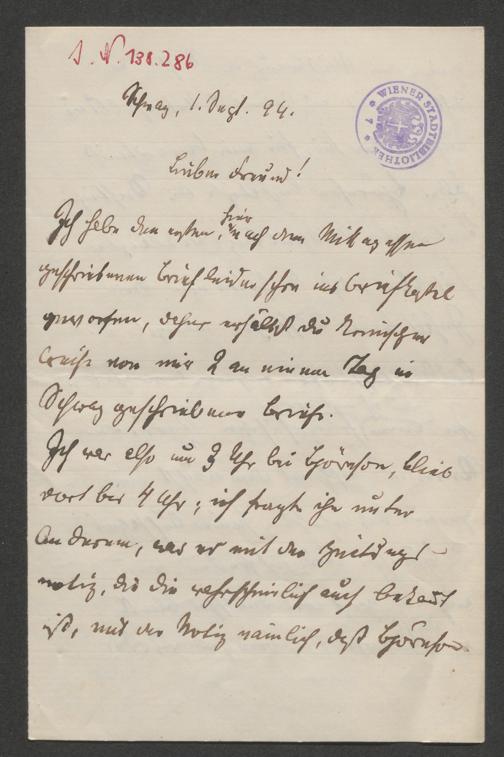 J. N. 138.286
WIENER STADTBIBLIOTHEK
Schwaz, 1. Sept. 94.
Lieber Freund!
Ich habe den ersten, hier nach dem Mittagessen
geschriebenen Brief leider schon ins Briefkastel
geworfen, daher erhältst du komischer
Weise von mir 2 an einem Tag in
Schwaz geschriebene Briefe.
Ich war also um 3 Uhr bei Björnson, blieb
dort bis 4 Uhr; ich fragte ihn unter
Anderem, was es mit der Zeitungs-
notiz, die dir wahrscheinlich auch bekannt
ist, mit der Notiz nämlich, daß Björnson